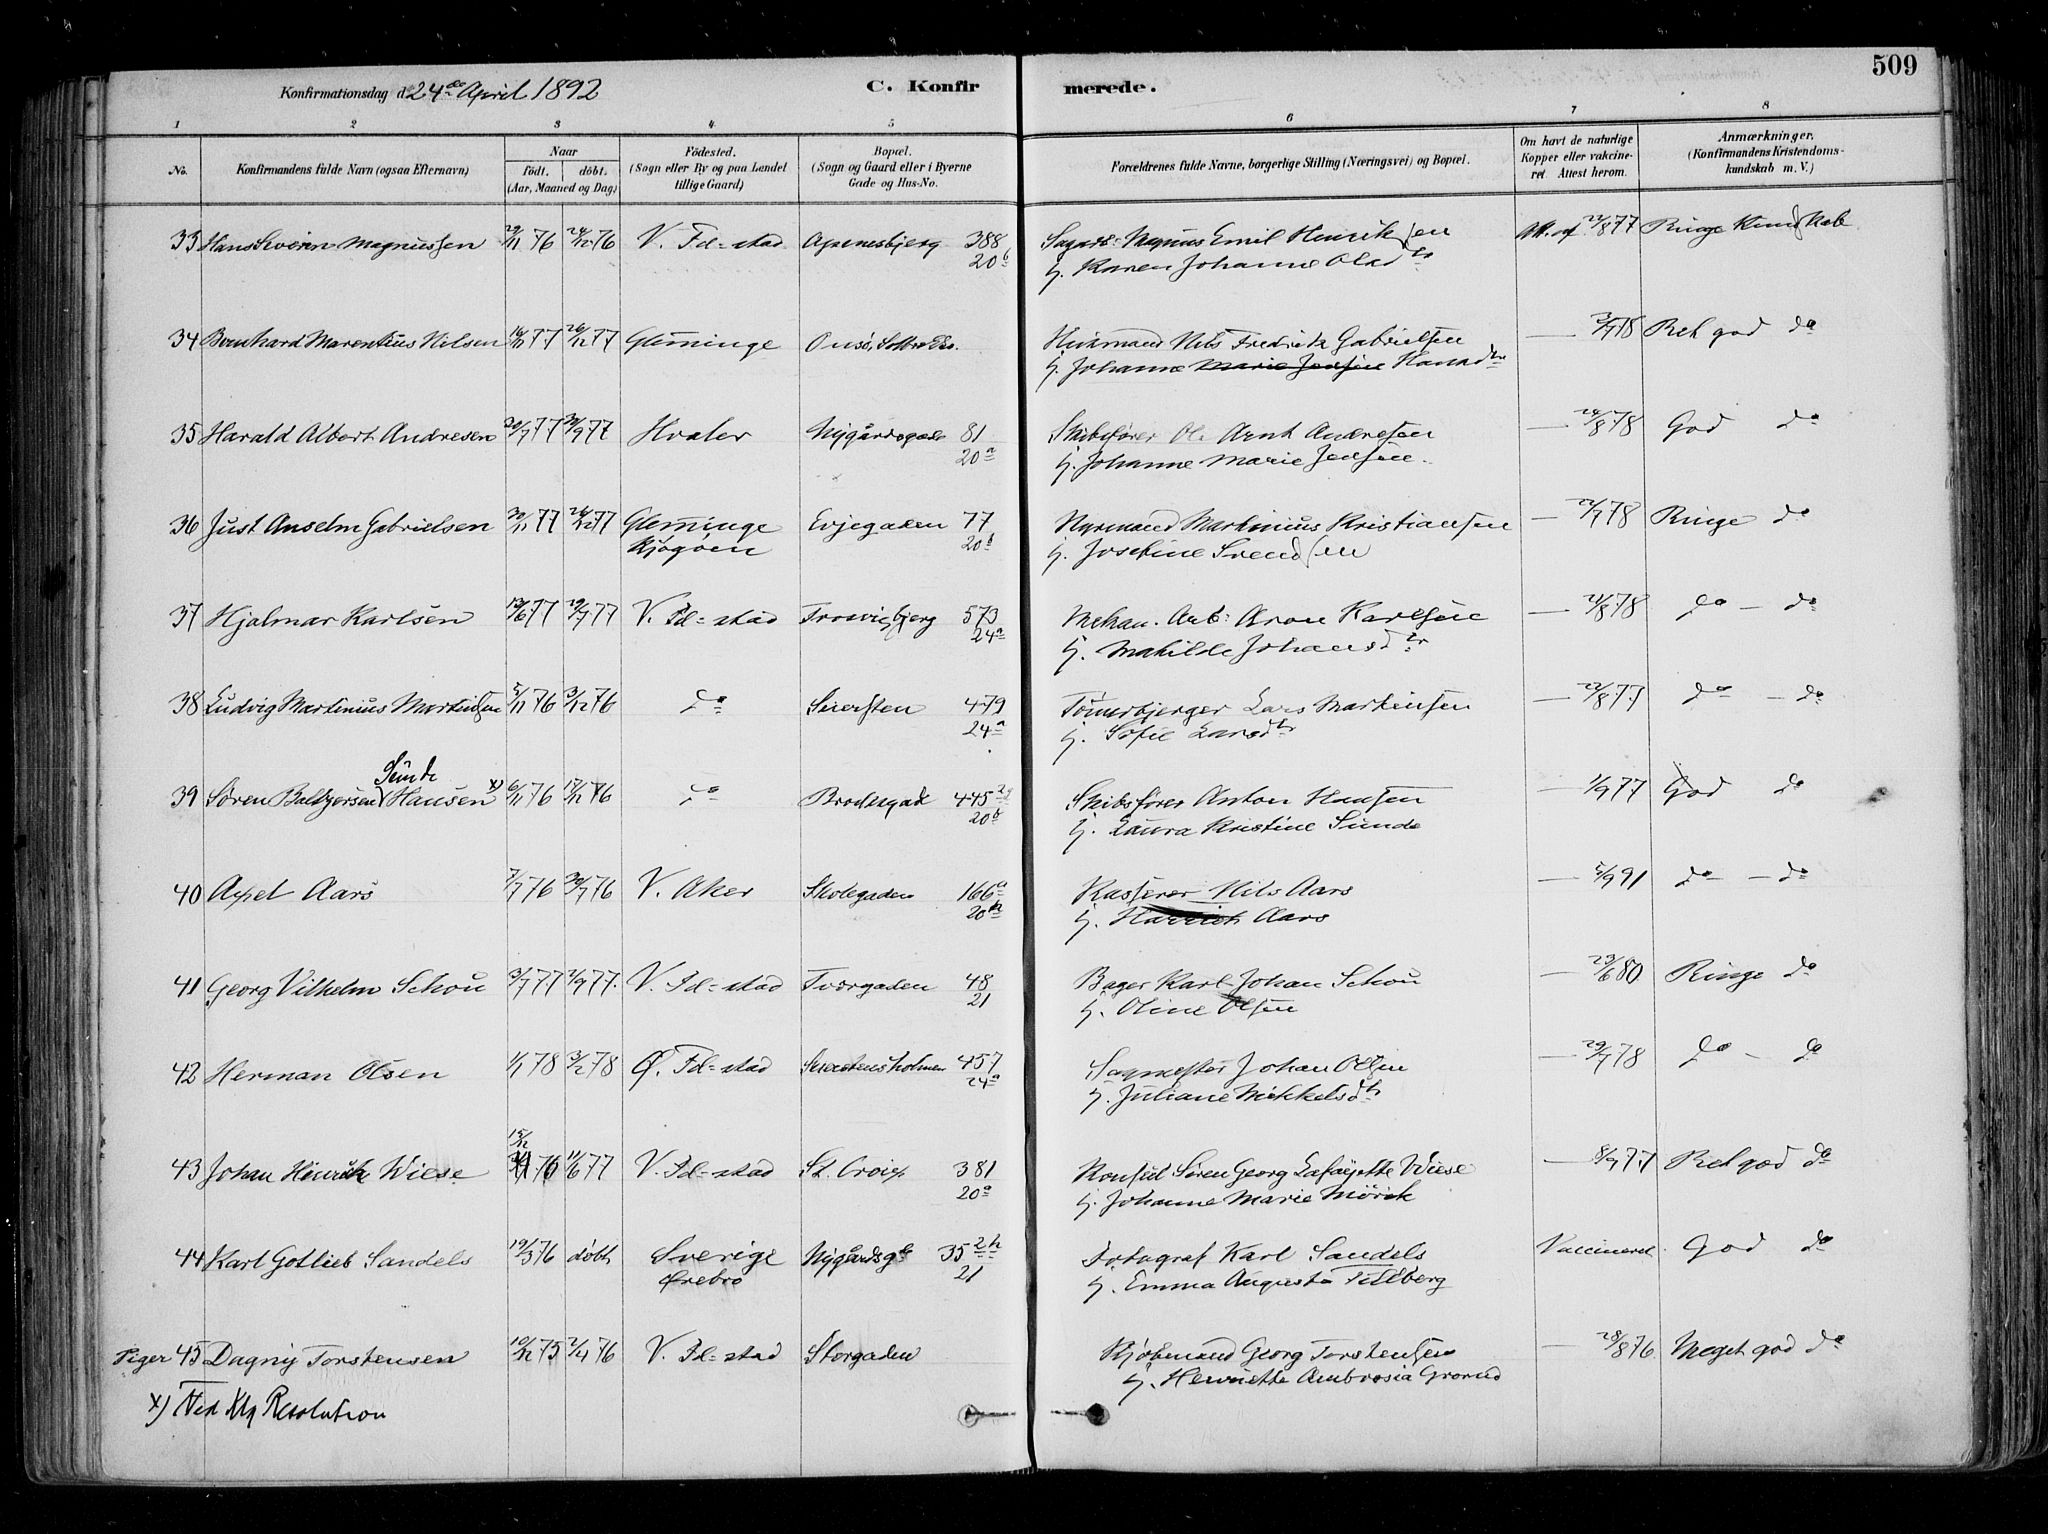 509
Konfirmationsdag d. 24de April 1892
C. Konfirmerede.
1 2 3 4 5 6 7 8
No. Konfirmandens fulde Navn (ogsaa Efternavn) Naar födt. döbt. (Aar, Maaned og Dag) Födested. (Sogn eller By og paa Landet tillige Gaard) Bopæl. (Sogn og Gaard eller i Byerne Gade og Hus-No. Forældrenes fulde Navne, borgerlige Stilling (Næringsvei) og Bopæl. Om havt de naturlige Kopper eller vaccineret. Attest herom. Anmærkninger. (Konfirmandens Kristendomskundskab m. V.)
33 Hans Severin Magnussen 29/11 76 24/12 76 V. Fd=stad Apenesbjerg 388 Sagarb: Magnus Emil Henriksen Att. af 22/8 77 Ringe Kundskab
20b h. Karen Johanne Olsdtr
34 Bernhard Marentius Nilsen 16/11 77 26/12 77 Glemminge Onsö, Huusmand Nils Fredrik Gabrielsen — 3/7 78 Ret god do
h. Johanne Marie Jensen Hansdtr
35 Harald Albert Andresen 30/7 77 30/9 77 Hvaler Nygårdsgade 81 Skibsförer Ol. Arnt Andresen — 24/8 78 God do
20a h. Johanne Marie Jensen
36 Just Anselm Gabrielsen 30/11 77 26/12 77 Glemminge Evjegaden 77 Martinius Kristiansen — 2/7 78 Ringe do
Kjøgøen 20b h. Josefine Svendsen
37 Hjalmar Karlsen 13/6 77 29/7 77 V. Fd=stad Trosvigbjerg 573 Mekan. Arb: Aron Karlsen — 21/8 78 do — do
24a h. Mathilde Johansdtr
38 Ludvig Martinius Martinsen 5/11 76 3/12 76 do Seiersten 479 Tömerbjerger Lars Martinsen — 22/8 77 do — do
24a h. Sofie Larsdtr
Sunde
39 Søren Baltzersen Hansen x) 6/11 76 17/12 76 do Brodergade 445 Skibsförer Anton Hansen — 1/9 77 God do
20b h. Laura Kristine Sunde
40 Axel Aars 7/7 76 30/7 76 V. Aker Skolegaden 166a Kasserer Nils Aars — 5/9 91 do — do
20b h. Harriet Aars
41 Georg Vilhelm Schou 3/7 77 2/9 77. V. Fd=stad Tværgaden 48 Bager Karl Johan Schou — 23/6 80 Ringe do
21 h. Oline Olsen
42 Herman Olsen 1/1 78 3/2 78 Ø. Fd=stad Seierstensholmen 457 Sagmester Johan Olsen — 29/7 78 do — do
24a h. Juliane Mikkelsdtr
15/12
43 Johan Hinrik Wiese 76 11/6 77 V. Fd=stad St. Croix 381 Konsul Søren Georg Lafayette Wiese — 8/9 77 Ret god do
20a h. Johanne Marie Mörch
44 Karl Gotlieb Sandels 19/3 76 döbt Sverige Nygårdsgd 35 2h Fotograf Karl Sandels Vaccineret. God do
Ørebro 21 h. Emma Augusta Tillberg
Piger 45 Dagny Torstensen 10/12 75 2/4 76 V. Fd=stad Storgaden Kjöbmand Georg Torstensen — 28/8 76 Meget god do
h. Henriette Ambrosia Grorud
x) Ved Klg Resolution